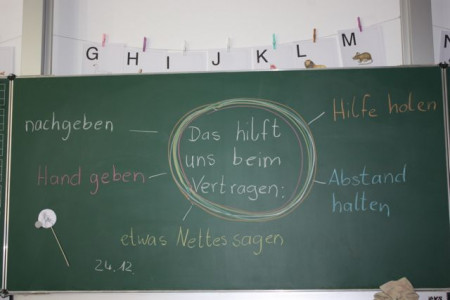 G H I J K L M
Das hilft
uns beim
Vertragen:
nachgeben
Hilfe holen
Hand geben
Abstand
halten
etwas Nettes sagen
24.12